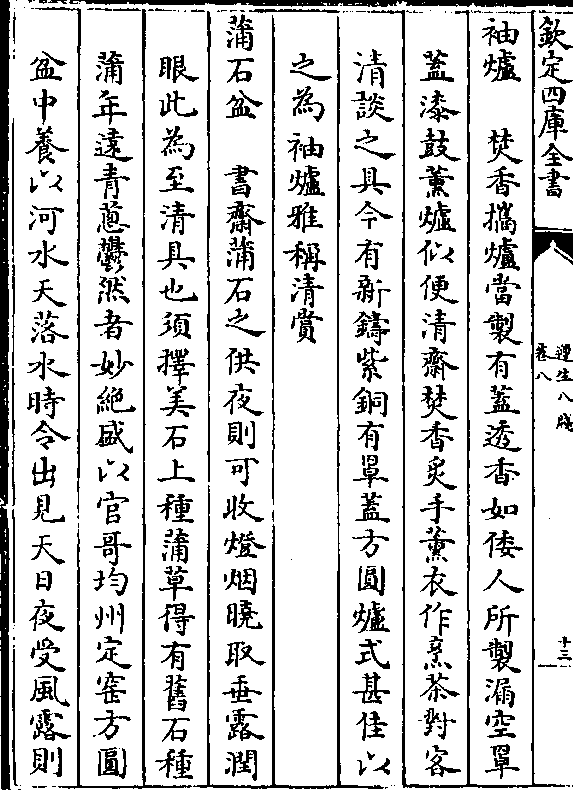 欽定四庫全書
遵生八牋
卷八
十三
袖爐　焚香攜爐當製有蓋透香如倭人所製漏空罩
蓋漆鼓薰爐似便清齋焚香炙手薰衣作烹茶對客
清談之具今有新鑄紫銅有罩蓋方圓爐式甚佳以
之為袖爐雅稱清賞
蒲石盆　書齋蒲石之供夜則可收燈烟曉取垂露潤
眼此為至清具也須擇美石上種蒲草得有舊石種
蒲年遠青蔥鬱然者妙絕盛以官哥均州定窑方圓
盆中養以河水天落水時令出見天日夜受風露則